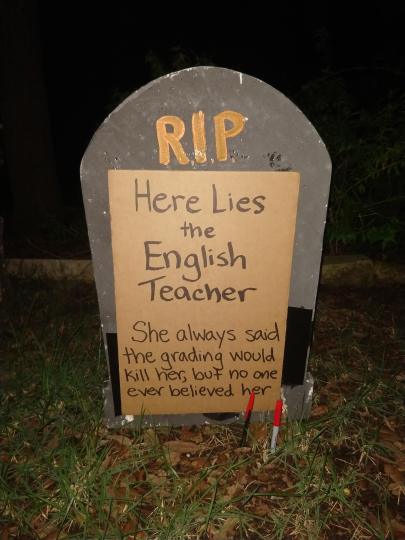 R.I.P
Here Lies
the
English
Teacher
She always said
the grading would
kill her, but no one
ever believed her